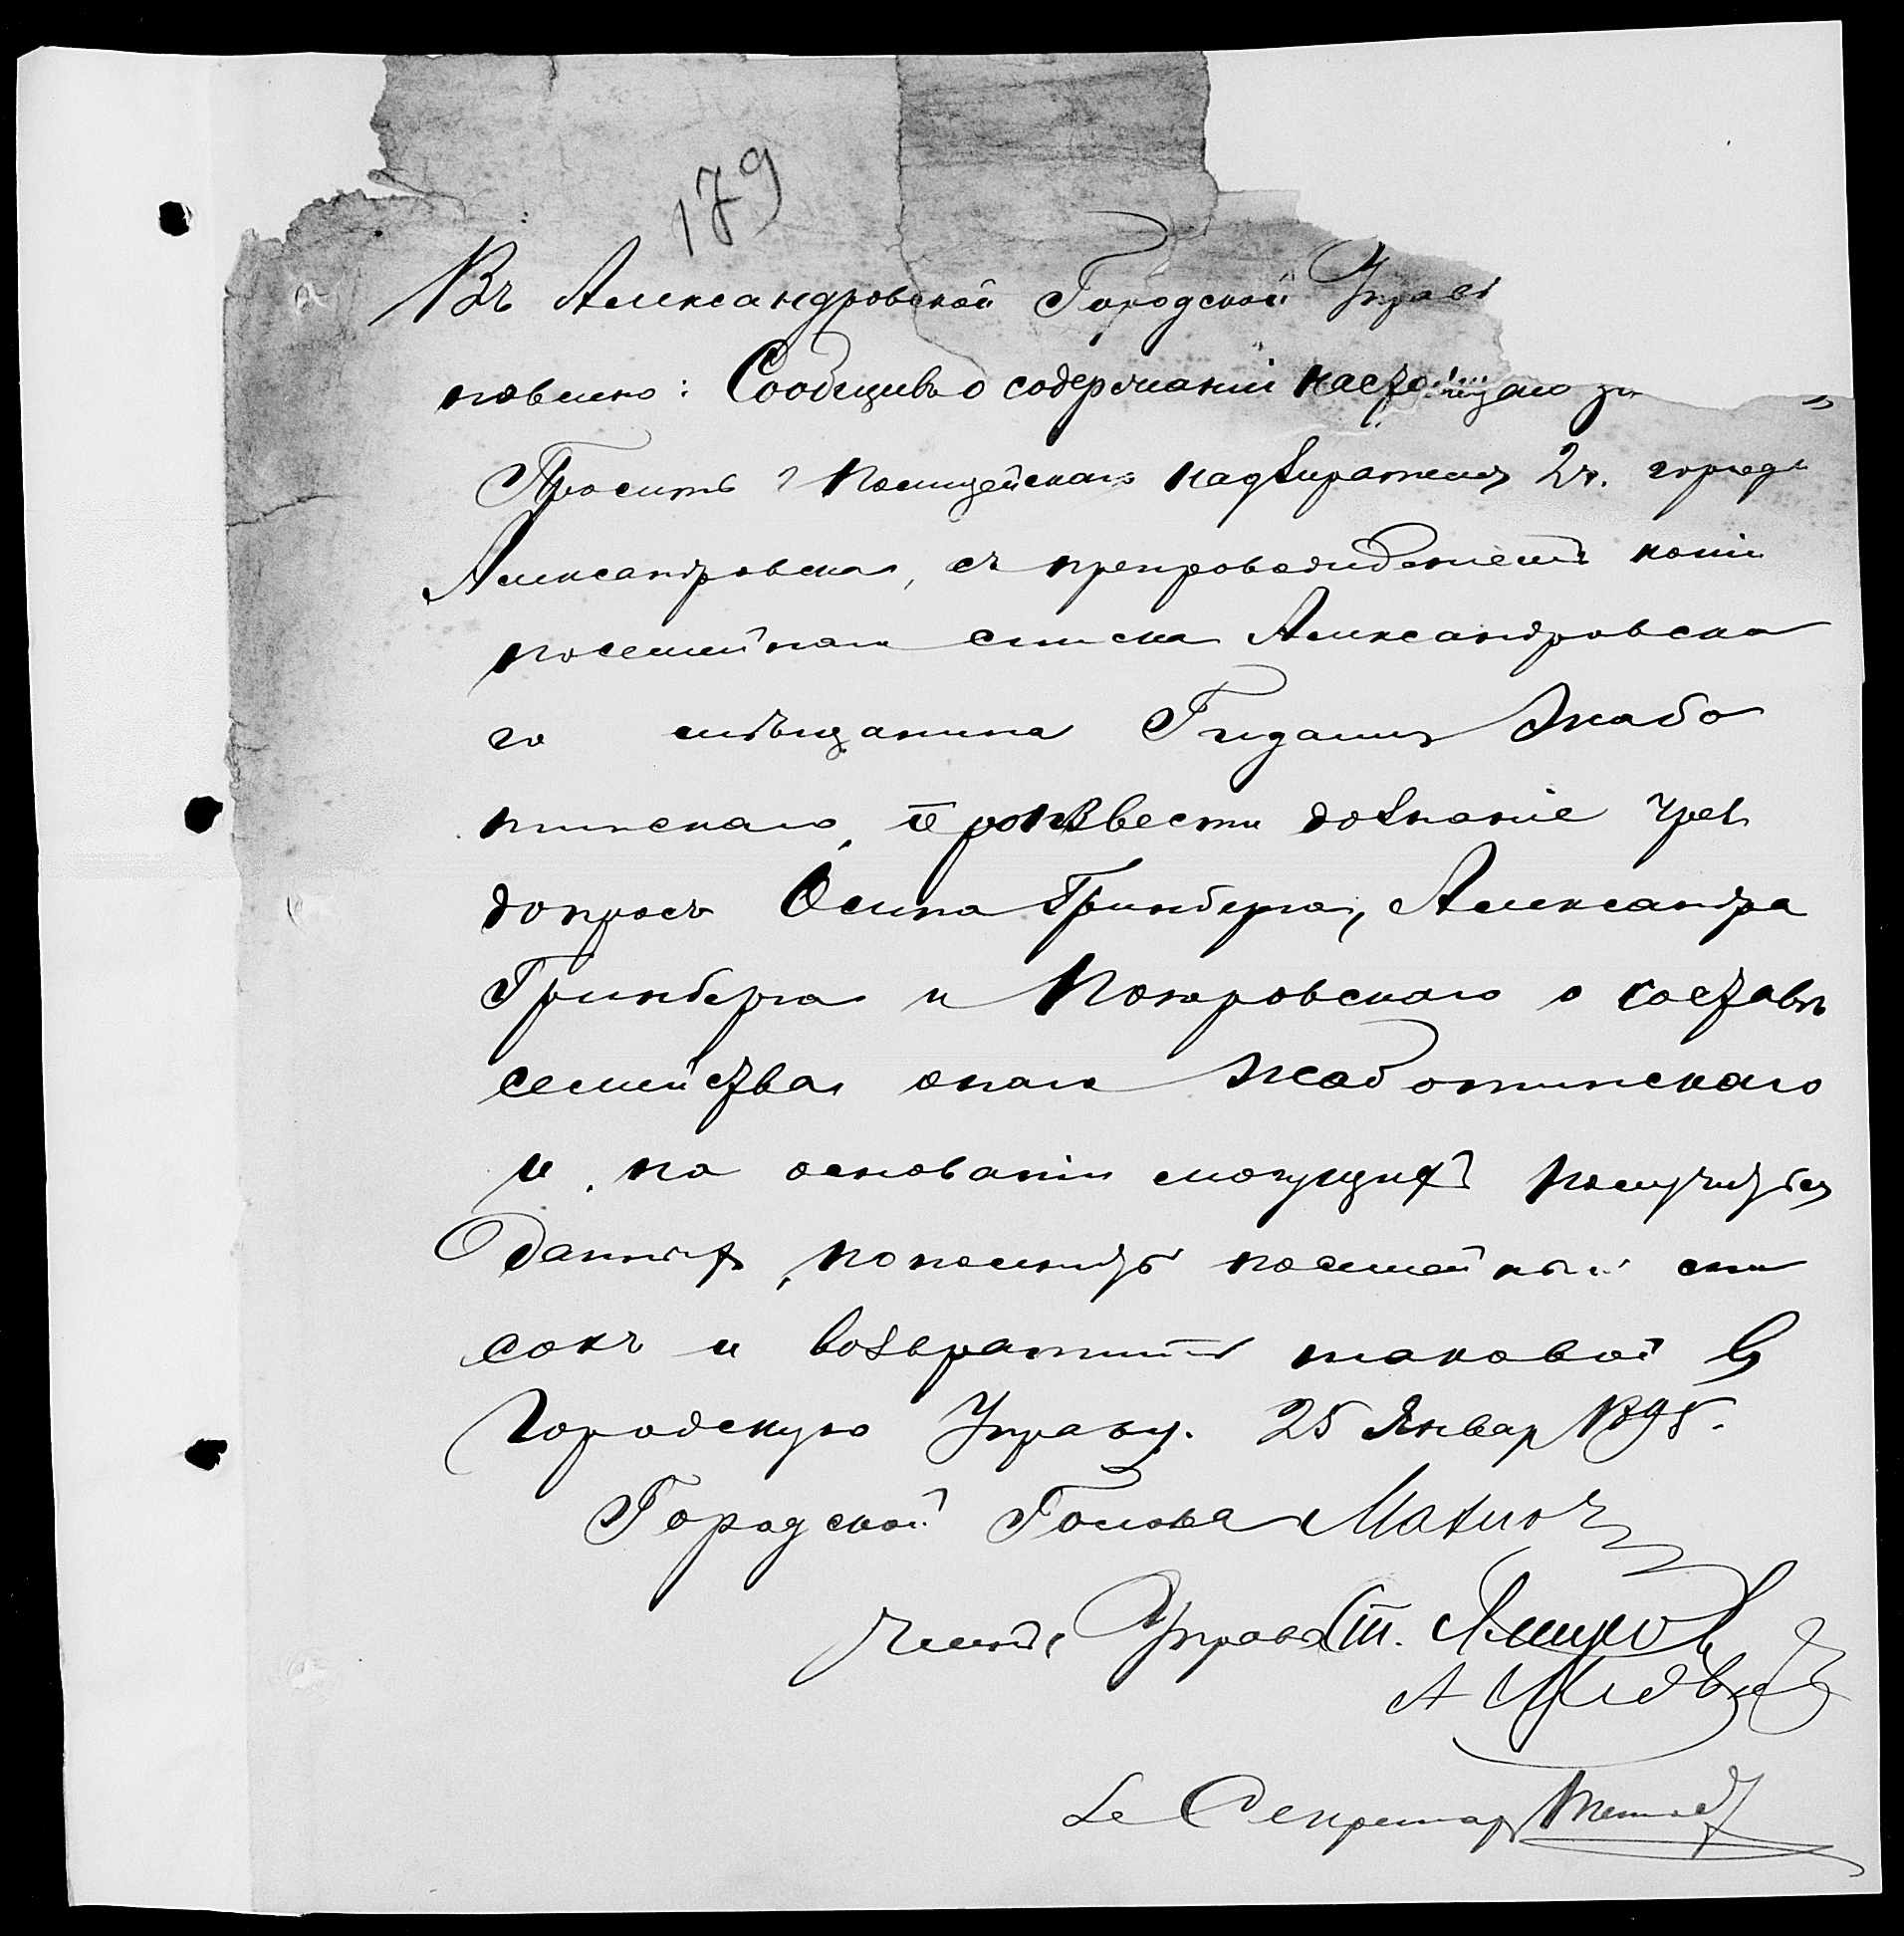 179
Въ Александровской Городской Управѣ
новлено: Сообщивъ о содержаніи настоящаго
Просить г Полицейскаго надзирателя 2 ч. города
Александровска, съ препровожденіемъ копіи
посемейнаго списка Александровска
го мѣщанина Гидалия Жабо
тинскаго, произвести дознаніе чрез
допросъ Осипа Гринберга, Александра
Гринберга и Покровскаго о составѣ
семейства онаго Жаботинскаго
и, на основаніи могущихъ получиться
данныхъ, пополнить посемейный спи
сокъ и возвратить таковой въ
Городскую Управу. 25 Январ 1895.
Городской Голова
Члены Управы
Секретарь